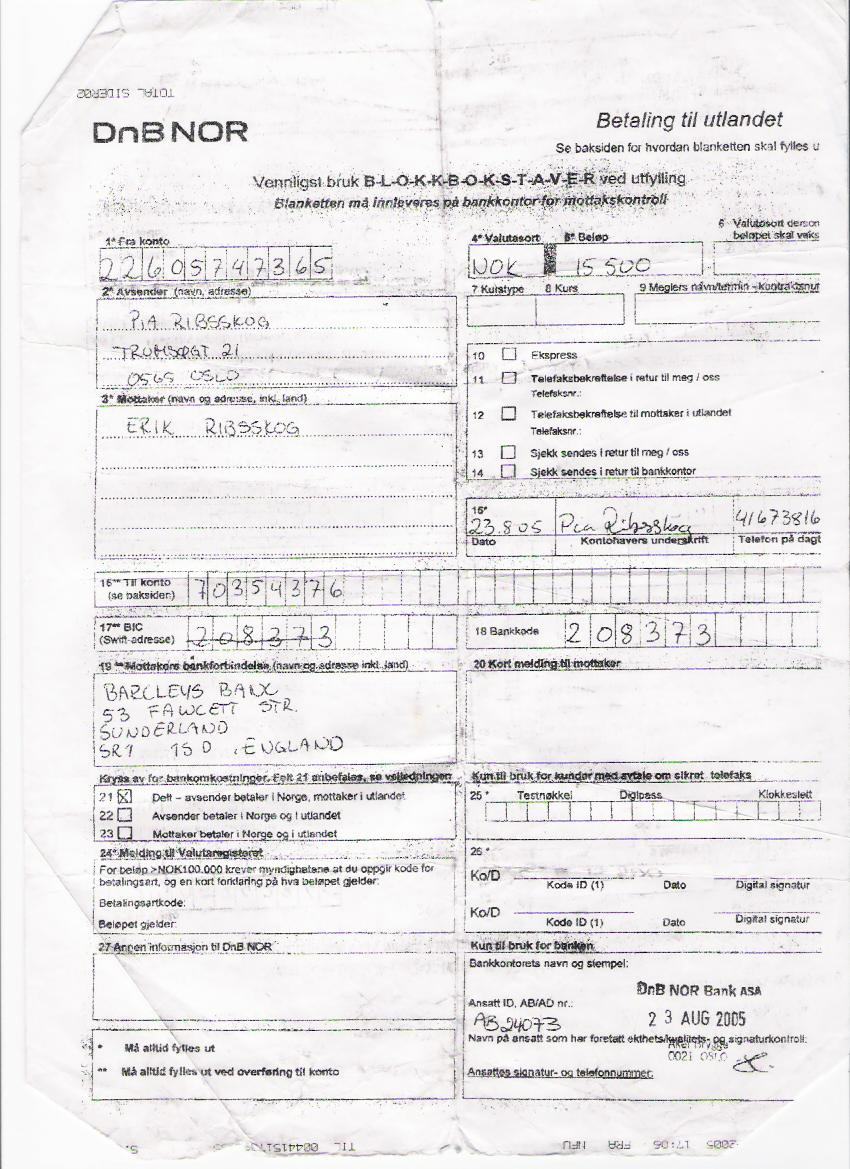 TOTAL SIDER02
DnB NOR
Betaling til utlandet
Se baksiden for hvordan blanketten skal fylles u
Vennligst bruk B-L-O-K-K-B-O-K-S-T-A-V-E-R ved utfylling
Blanketten må innleveres på bankkontor for mottakskontroll
1* Fra konto
22605747365
4* Valutasort 5* Beløp
NOK 15 500
6 Valutasort dersom
beløpet skal veks
2* Avsender (navn, adresse)
PIA RIBSSKOG
TROMSØGT 21
0565 OSLO
7 Kurstype 8 Kurs
9 Meglers navn/termin - kontraktsnur
3* Mottaker (navn og adresse, inkl. land)
ERIK RIBSSKOG
10 Ekspress
11 Telefaksbekreftelse i retur til meg / oss
Telefaksnr.:
12 Telefaksbekreftelse til mottaker i utlandet
Telefaksnr.:
13 Sjekk sendes i retur til meg / oss
14 Sjekk sendes i retur til bankkontor
15*
23.8.05 Pia Ribsskog 41673816
Dato Kontohavers underskrift Telefon på dagt
16** Til konto
(se baksiden)
70354376
17** BIC
(Swift-adresse)
208373
18 Bankkode
208373
19 ** Mottakers bankforbindelse (navn og adresse inkl. land)
BARCLEYS BANK
53 FAWCETT STR.
SUNDERLAND
SR1 1SD , ENGLAND
20 Kort melding til mottaker
Kryss av for bankomkostninger. Felt 21 anbefales, se veiledningen
21 X Delt – avsender betaler i Norge, mottaker i utlandet
22 Avsender betaler i Norge og i utlandet
23 Mottaker betaler i Norge og i utlandet
24* Melding til Valutaregisteret
For beløp >NOK100.000 krever myndighetene at du oppgir kode for
betalingsart, og en kort forklaring på hva beløpet gjelder:
Betalingsartkode:
Beløpet gjelder:
Kun til bruk for kunder med avtale om sikret telefaks
25 * Testnøkkel Digipass Klokkeslett
26 *
Ko/D
Kode ID (1) Dato Digital signatur
Ko/D
Kode ID (1) Dato Digital signatur
27 Annen informasjon til DnB NOR
Kun til bruk for banken
Bankkontorets navn og stempel:
DnB NOR Bank ASA
Ansatt ID, AB/AD nr.:
AB24073
2 3 AUG 2005
Navn på ansatt som har foretatt ekthets/kvalitets- og signaturkontroll:
Aker Brygge
0021 OSLO
Ansattes signatur- og telefonnummer:
* Må alltid fylles ut
** Må alltid fylles ut ved overføring til konto
2005 17:06 FRA NFU
TIL